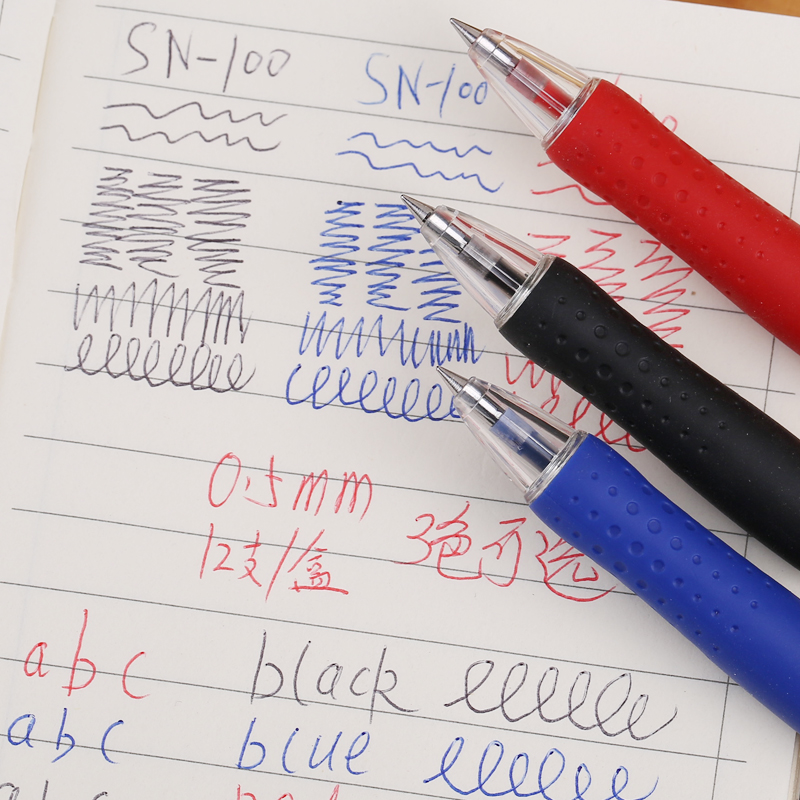 SN-100
SN-100
0.5mm
12支/盒
3色可选
abc black
abc blue
abc